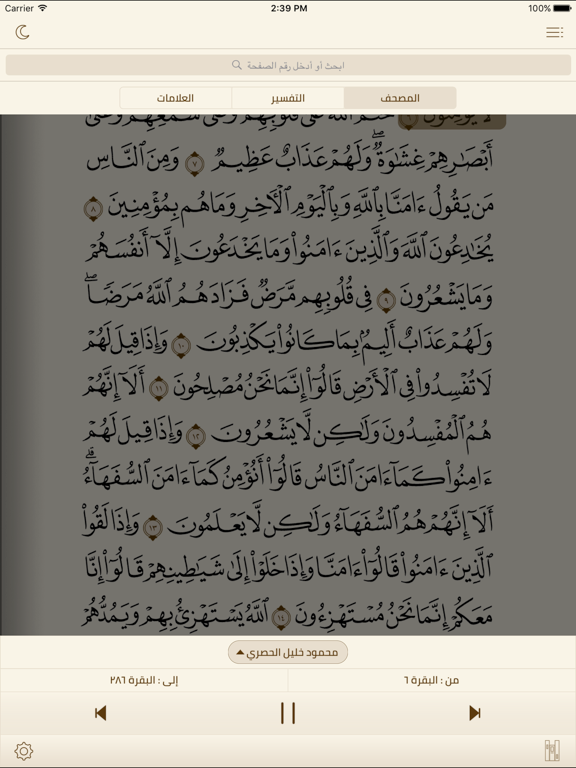 Carrier 2:39 PM 100%
ابحث أو أدخل رقم الصفحة
المصحف التفسير العلامات
لَا يُؤْمِنُونَ ٦ خَتَمَ ٱللَّهُ عَلَىٰ قُلُوبِهِمْ وَعَلَىٰ سَمْعِهِمْ وَعَلَىٰٓ
أَبْصَٰرِهِمْ غِشَٰوَةٌۖ وَلَهُمْ عَذَابٌ عَظِيمٌ ٧ وَمِنَ ٱلنَّاسِ
مَن يَقُولُ ءَامَنَّا بِٱللَّهِ وَبِٱلْيَوْمِ ٱلْأَخِرِ وَمَا هُم بِمُؤْمِنِينَ ٨
يُخَٰدِعُونَ ٱللَّهَ وَٱلَّذِينَ ءَامَنُوا۟ وَمَا يَخْدَعُونَ إِلَّآ أَنفُسَهُمْ
وَمَا يَشْعُرُونَ ٩ فِى قُلُوبِهِم مَّرَضٌ فَزَادَهُمُ ٱللَّهُ مَرَضًاۖ
وَلَهُمْ عَذَابٌ أَلِيمٌۢ بِمَا كَانُوا۟ يَكْذِبُونَ ١٠ وَإِذَا قِيلَ لَهُمْ
لَا تُفْسِدُوا۟ فِى ٱلْأَرْضِ قَالُوٓا۟ إِنَّمَا نَحْنُ مُصْلِحُونَ ١١ أَلَآ إِنَّهُمْ
هُمُ ٱلْمُفْسِدُونَ وَلَٰكِن لَّا يَشْعُرُونَ ١٢ وَإِذَا قِيلَ لَهُمْ
ءَامِنُوا۟ كَمَآ ءَامَنَ ٱلنَّاسُ قَالُوٓا۟ أَنُؤْمِنُ كَمَآ ءَامَنَ ٱلسُّفَهَآءُۗ
أَلَآ إِنَّهُمْ هُمُ ٱلسُّفَهَآءُ وَلَٰكِن لَّا يَعْلَمُونَ ١٣ وَإِذَا لَقُوا۟
ٱلَّذِينَ ءَامَنُوا۟ قَالُوٓا۟ ءَامَنَّا وَإِذَا خَلَوْا۟ إِلَىٰ شَيَٰطِينِهِمْ قَالُوٓا۟ إِنَّا
مَعَكُمْ إِنَّمَا نَحْنُ مُسْتَهْزِءُونَ ١٤ ٱللَّهُ يَسْتَهْزِئُ بِهِمْ وَيَمُدُّهُمْ
محمود خليل الحصري
من : البقرة ٦ إلى : البقرة ٢٨٦